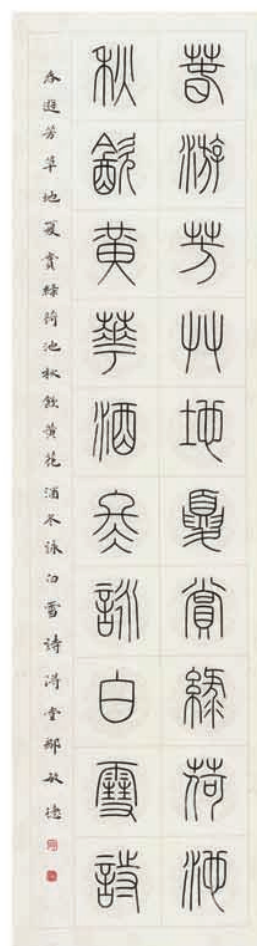 春游芳艸地夏賞綠荷池
秋飲黃華酒冬詠白雪詩
春遊芳草地夏賞綠荷池秋飲黃花酒冬詠白雪詩 鄭敏德